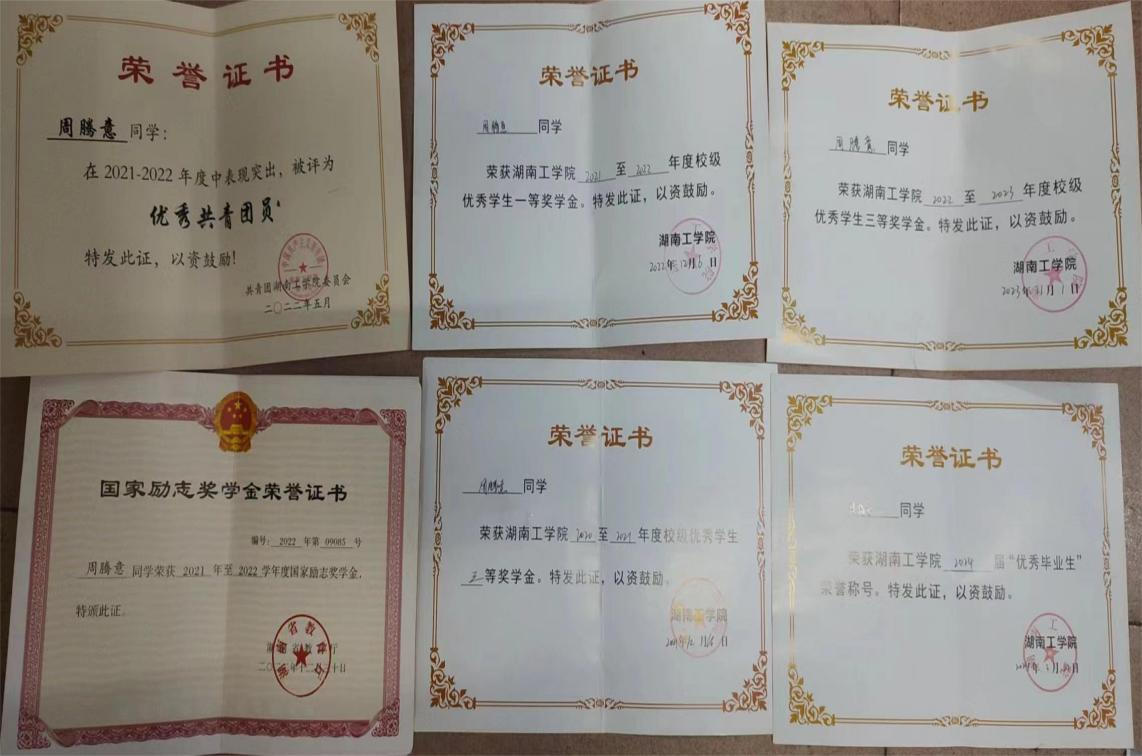 荣誉证书
周腾意 同学：
在 2021-2022 年度中表现突出，被评为
优秀共青团员。
特发此证，以资鼓励！
共青团湖南工学院委员会
二〇二二年五月
荣誉证书
周腾意 同学
荣获湖南工学院 2021 至 2022 年度校级
优秀学生一等奖学金。特发此证，以资鼓励。
湖南工学院
2022年12月6日
荣誉证书
周腾意 同学
荣获湖南工学院 2022 至 2023 年度校级
优秀学生三等奖学金。特发此证，以资鼓励。
湖南工学院
2023年 月1日
国家励志奖学金荣誉证书
编号： 2022 年第 09085 号
周腾意 同学荣获 2021 年至 2022 学年度国家励志奖学金，
特颁此证。
荣誉证书
周腾意 同学
荣获湖南工学院 2020 至 2021 年度校级优秀学生
三等奖学金。特发此证，以资鼓励。
湖南工学院
年12月6日
荣誉证书
同学
荣获湖南工学院 2024 届“优秀毕业生”
荣誉称号。特发此证，以资鼓励。
湖南工学院